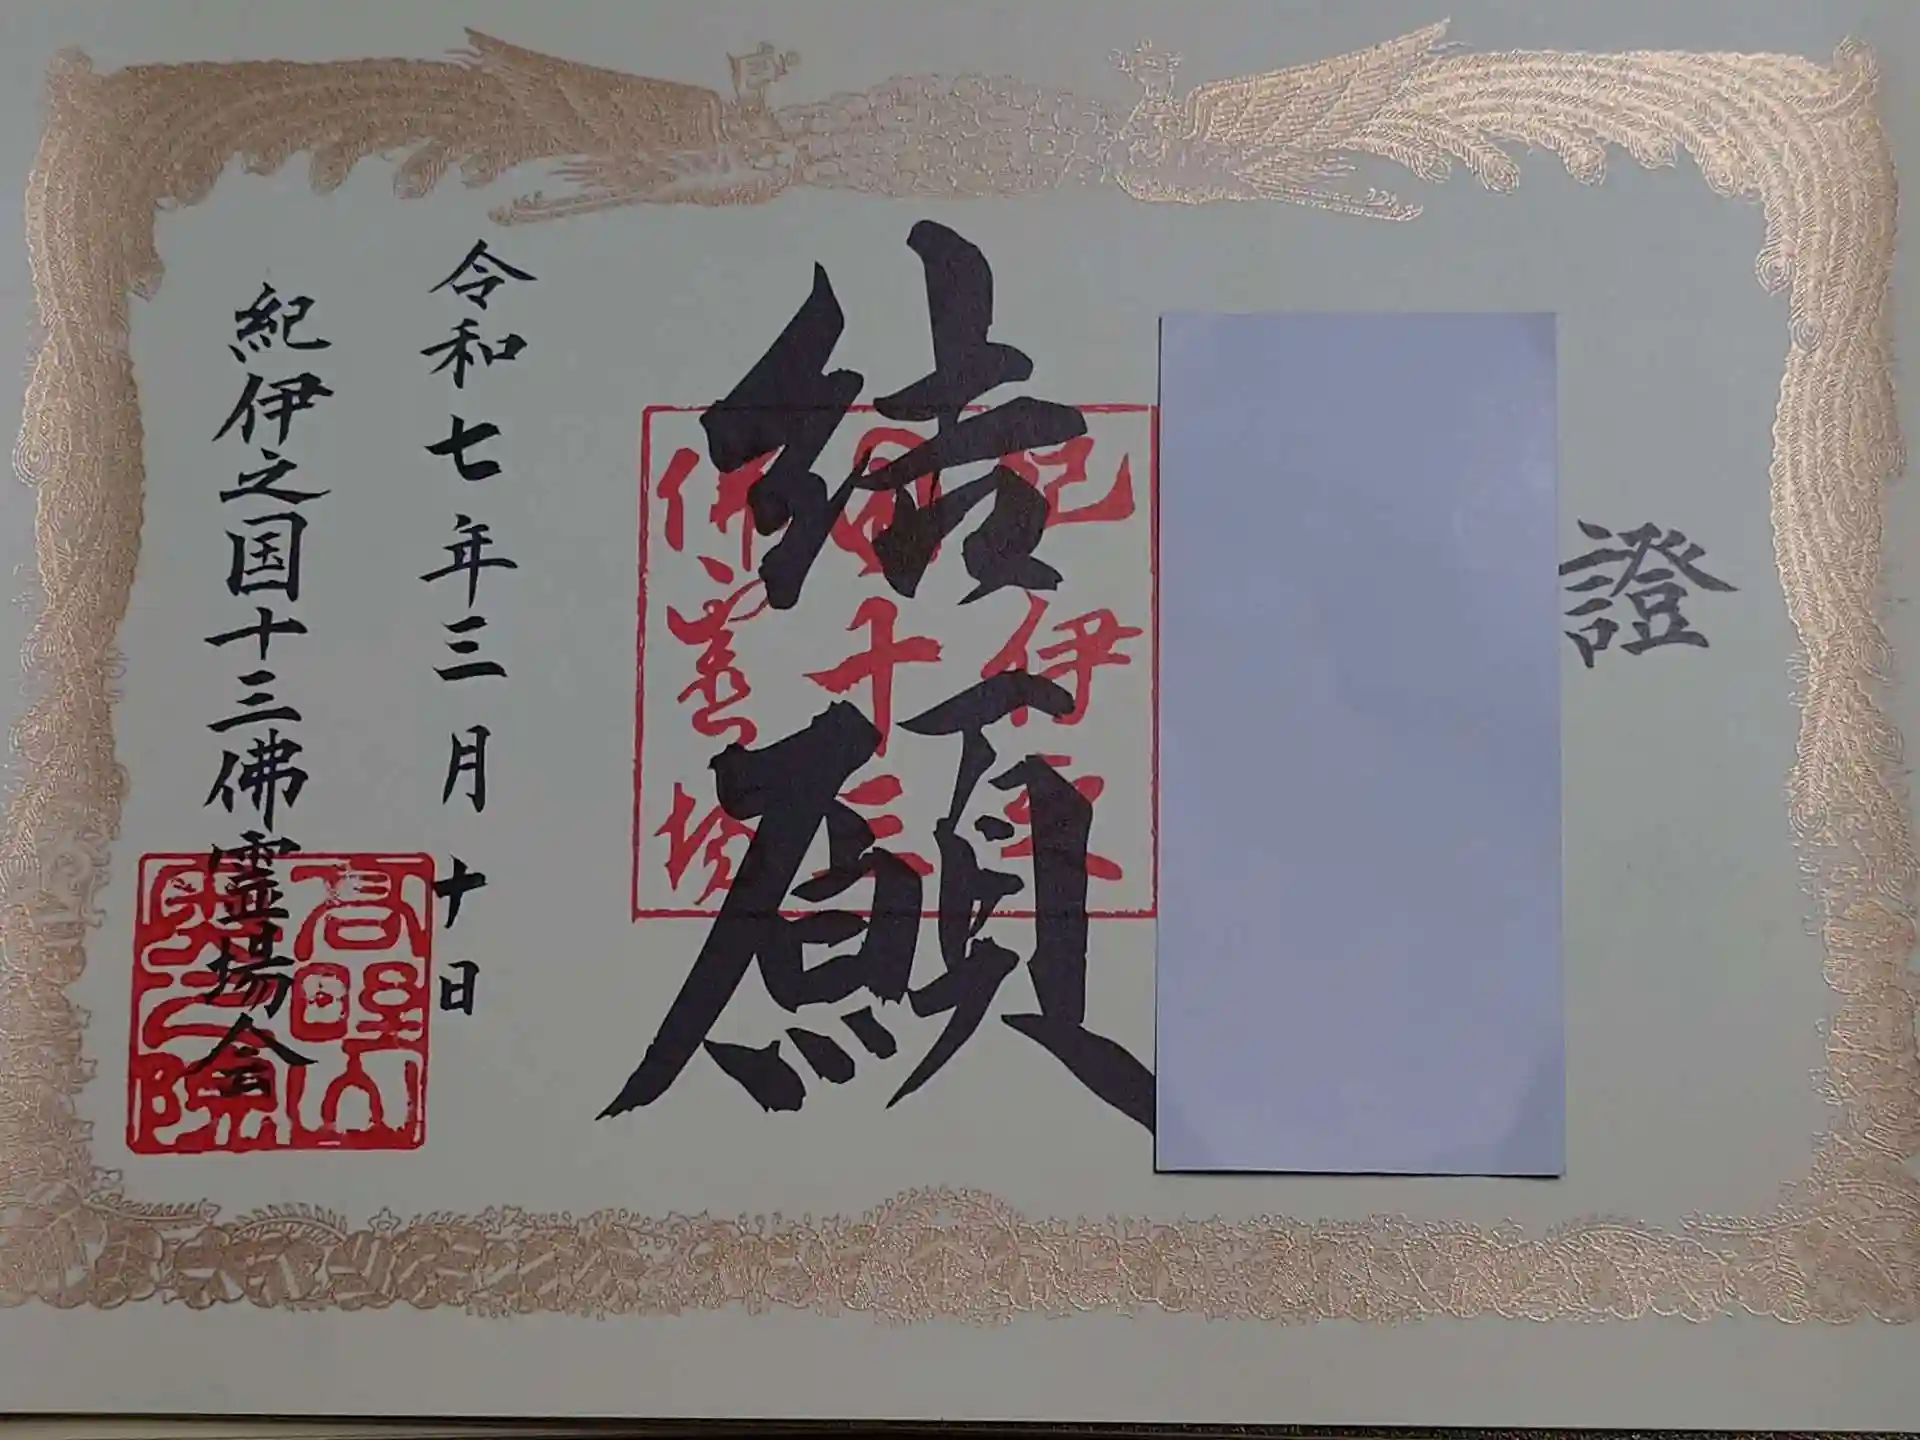 證
結願
令和七年三月十日
紀伊之国十三佛霊場会
紀伊之
国十三
佛霊場
高野山
奥之院